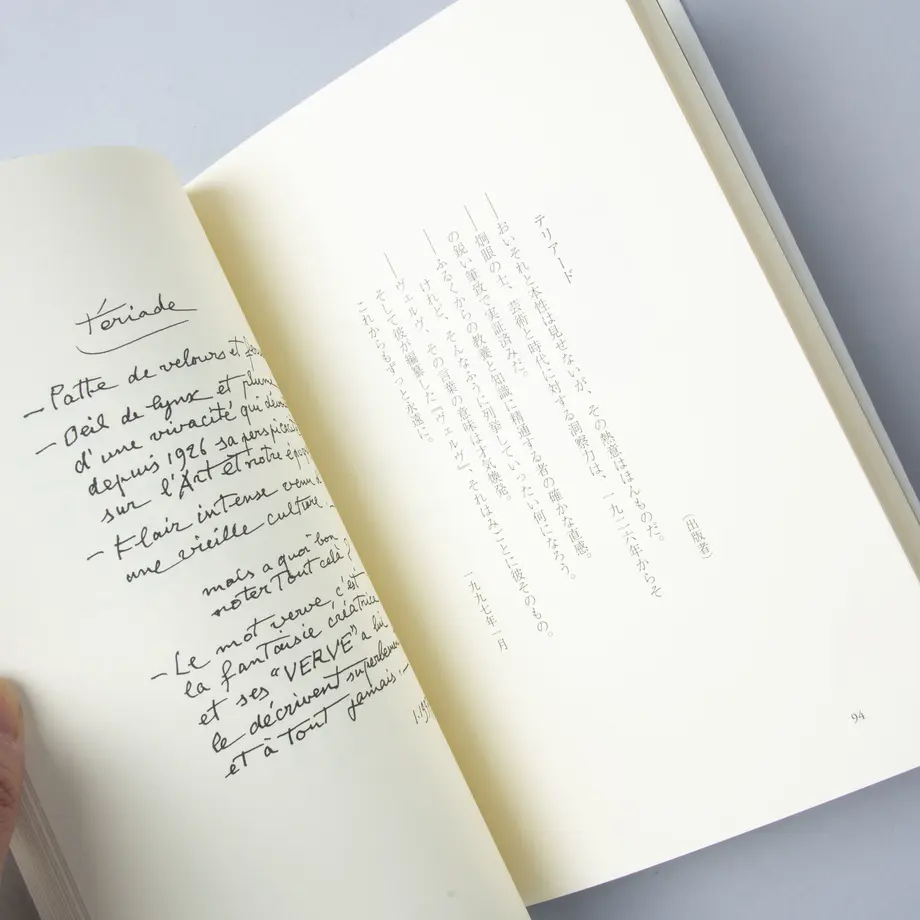 Tériade
– Patte de velours et
– Oeil de lynx et plume
d'une vivacité qui
depuis 1926 sa
sur l'Art et notre
– Flair intense venu
une vieille culture.
mais a quoi bon
noter Tout celà?
– Le mot verve, c'est
la fantaisie créatrice
et ses "VERVE" a lui
le décrivent
et à tout jamais.
テリアード
（出版者）
――おいそれと本性は見せないが、その熱意はほんものだ。
――炯眼の士、芸術と時代に対する洞察力は、一九二六年からそ
の鋭い筆致で実証済みだ。
――ふるくからの教養と知識に精通する者の確かな直感。
けれど、そんなふうに列挙していったい何になろう。
――ヴェルヴ、その言葉の意味は才気煥発。
そして彼が編纂した『ヴェルヴ』、それはみごとに彼そのもの。
これからもずっと永遠に。
一九九七年一月
94